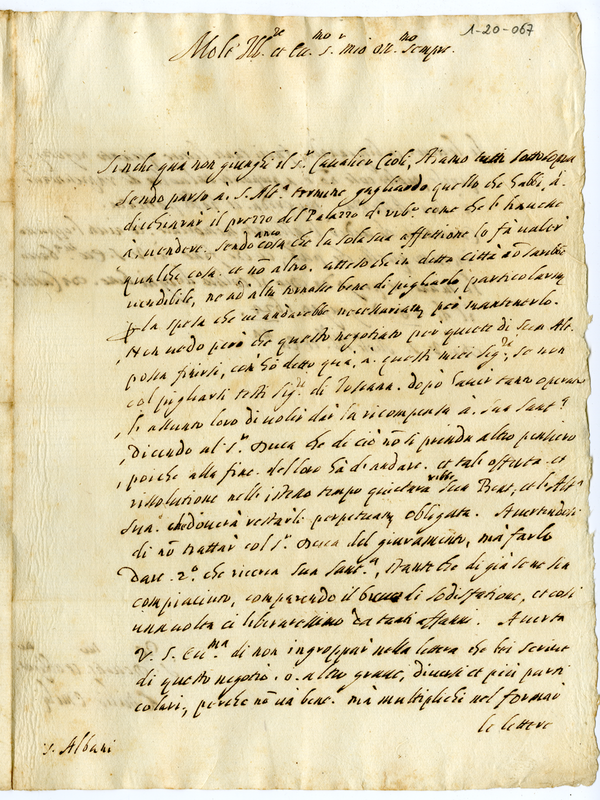 1-20-067
Molt' Ill.re et Ecc.mo s.r mio oss.mo sempre.
Sinche quà non giunghi il s.r Cavalier Cioli, stiamo tutti sottosopra
sendo parso à. S. Alt.a termine gagliardo quello che habbi, à.
dicchiarar il prezzo del Palazzo di Urb.o come che l'
à vendere. sendo anco cosa che la sola sua affettione lo fà valer
qualche cosa. et nõ altro. atteso che in detta Città nõ sarebbe
vendibile, ne nõ altri tornasse bene di pigliarlo, particolarm.
la spesa che vi andarebbe necessariam. per mantenerlo.
Non vedo però che questo negotiato per quiete di Sua Alt.
possa finirsi, con hò detto quà, à. questi miei Sig.ri, se non
col pigliarsi testi Sig.ri di Toscana. dopò haver tanto operato
loro di voler dar la ricompensa à. Sua Sant.tà
dicendo al s.r Duca che di ciò nõ si prenda altro pensiero
poiche alla fine. nel loro hà di andare. et tale offerta. et
rissolutione nello istesso tempo quietarà Sua Beat. et l'Alt.a
Sua. che doverà restarli perpetuam. obligata. Avertendosi
di nõ trattar col s.r Duca del giuramento, mà farlo
dare. 2.o che ricerca Sua Sant.tà, stante che di già se ne sia
compiaciuto, comparendo il breve di sodisfatione, et così
una volta ci liberaressimo da tanti affanni. Averta
V. S. Ecc.ma di non ingroppar nella lettera che lei scrive
di questo negotio. o. altro grave, diversi et più parti
colari, perche nõ và bene. mà multiplichi nel formar
le lettere
s. Albani